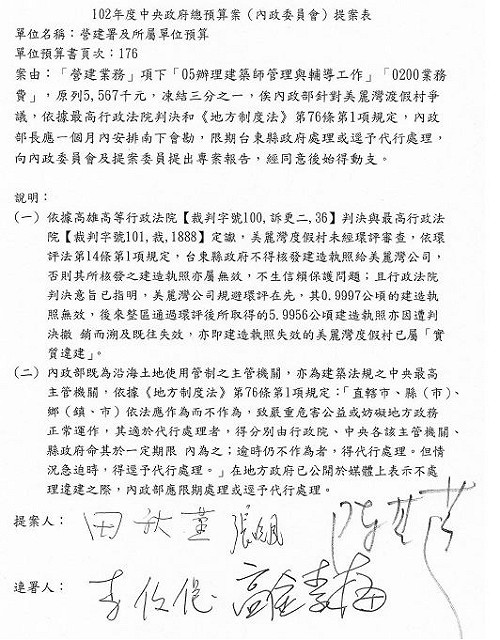 102年度中央政府總預算案（內政委員會）提案表
單位名稱：營建署及所屬單位預算
單位預算書頁次：176
案由：「營建業務」項下「05辦理建築師管理與輔導工作」「0200業務
費」，原列5,567千元，凍結三分之一，俟內政部針對美麗灣渡假村爭
議，依據最高行政法院判決和《地方制度法》第76條第1項規定，內政
部長應一個月內安排南下會勘，限期台東縣政府處理或逕予代行處理，
向內政委員會及提案委員提出專案報告，經同意後始得動支。
說明：
(一) 依據高雄高等行政法院【裁判字號100,訴更二,36】判決與最高行政法
院【裁判字號101,裁,1888】定讞，美麗灣渡假村未經環評審查，依環
評法第14條第1項規定，台東縣政府不得核發建造執照給美麗灣公司，
否則其所核發之建造執照亦屬無效，不生信賴保護問題；且行政法院
判決意旨已指明，美麗灣公司規避環評在先，其0.9997公頃的建造執
照無效，後來整區通過環評後所取得的5.9956公頃建造執照亦因遭判
決撤 銷而溯及既往失效，亦即建造執照失效的美麗灣渡假村已屬「實
質違建」。
(二) 內政部既為沿海土地使用管制之主管機關，亦為建築法規之中央最高
主管機關，依據《地方制度法》第76條第1項規定：「直轄市、縣（市）、
鄉（鎮、市）依法應作為而不作為，致嚴重危害公益或妨礙地方政務
正常運作，其適於代行處理者，得分別由行政院、中央各該主管機關、
縣政府命其於一定期限 內為之；逾時仍不作為者，得代行處理。但情
況急迫時，得逕予代行處理。」在地方政府已公開於媒體上表示不處
理違建之際，內政部應限期處理或逕予代行處理。
提案人：田秋堇
連署人：李俊俋 高金素梅